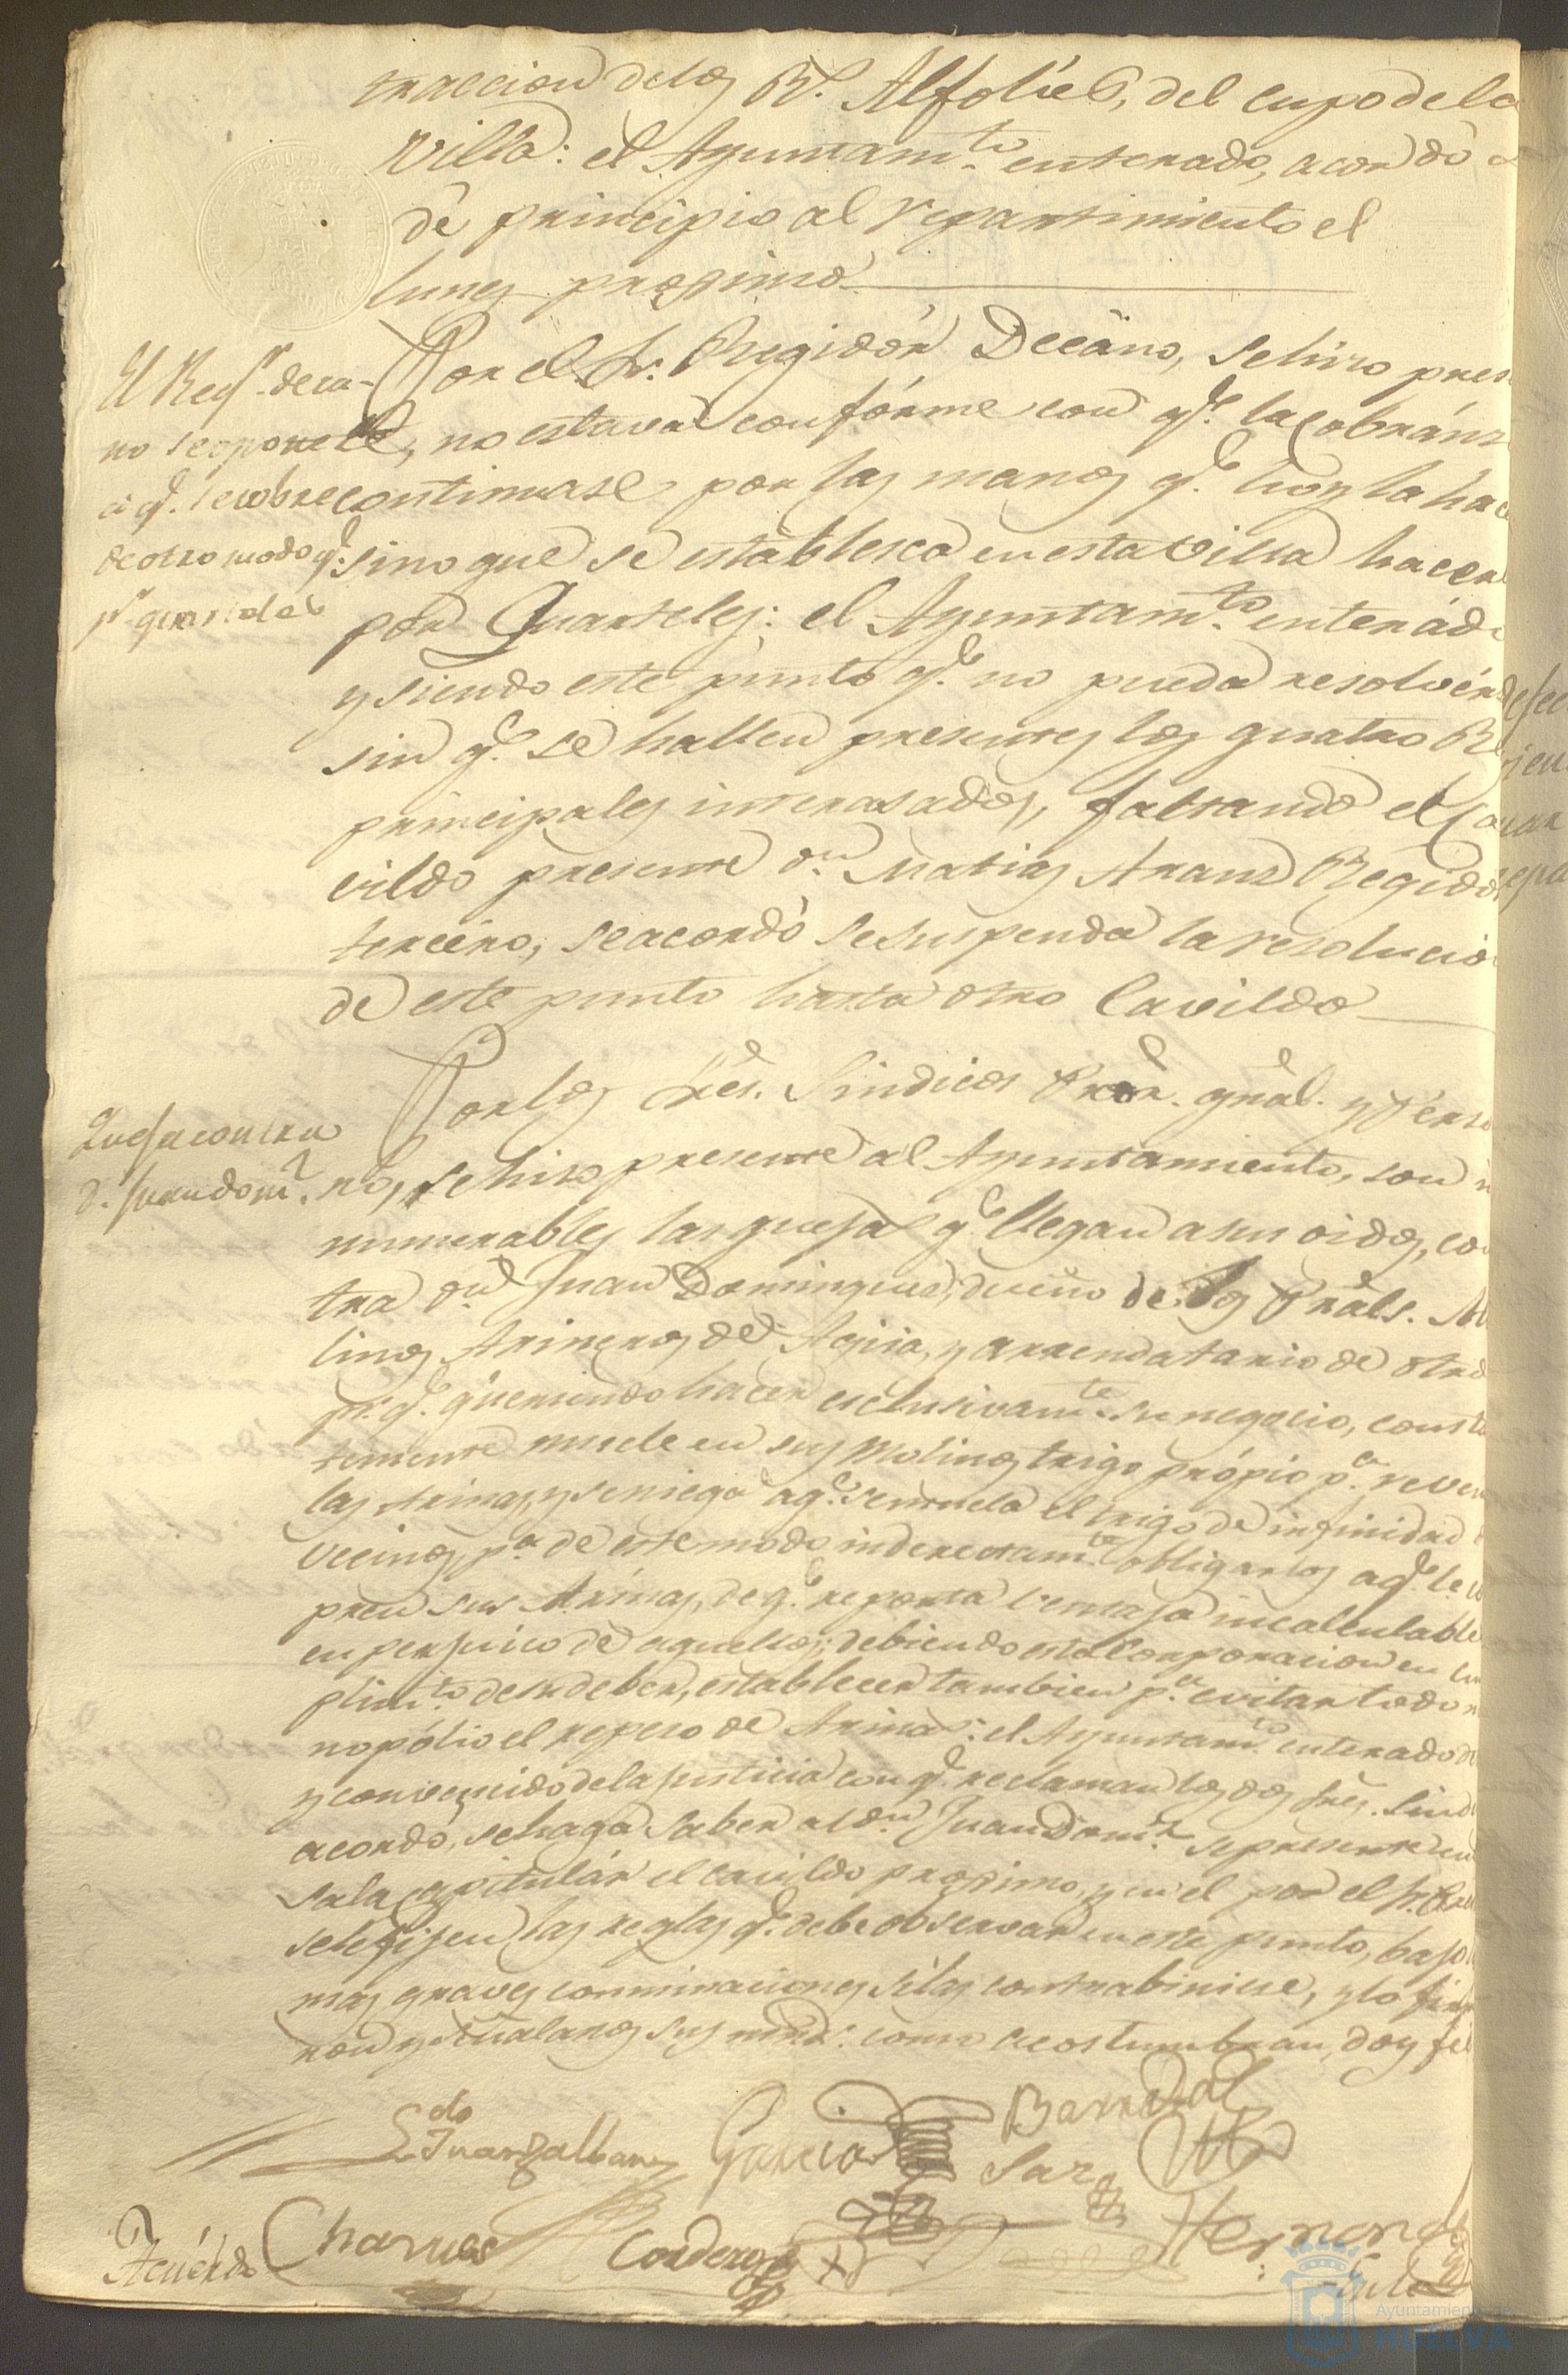 traccion delos R.s Alfolies, del cupo de la
Villa: el Ayuntam.to enterado, acordó
dé principio al repartimiento el
lunes proximo
El Reg.r deca-
no se opone
á q.e se cobre
de otro modo q.e
p.r quarteles
Por el S.r Regidór Decáno, se hizo pres
te, no estava confórme con q.e la cobránz
continuase por las manos q.e hoy la hac
sino que se establesca en esta villa hacer
por Quarteles: el Ayuntam.to enterád
y siendo este punto q.e no pueda resolvér
sin q.e se hallen presentes los quatro R
principales interasados, faltando el Ca
vildo presente d.n Matias Aranz Regidor
tercero, se acordó se suspenda la resolucio
de este punto hasta otro Cavildo
Quejas contra
d. Juan Dom.z
Por los S.res Sindicos Pror. gral. y Perso
no, se hizo presente al Ayuntamiento, son in
numerables las quejas q.e llegan a sus oidos, con
tra d.n Juan Dominguez, dueño de los Prals. Mo
linos Arineros de Agua, y arrendatario de otro
pr. q.e queriendo hacer esclusivam.te su negocio, const
temente muele en sus Molinos trigo própio p.a reven
las Arinas, y se niega a q.e se muela el trigo de infinidad
Vecinos, p.a de este modo inderectam.te obligarlos a q.e le co
pren sus Arinas, de q.e reporta ventaja incalculable
en perjuicio de aquellos; debiendo esta Corporacion en cum
plim.to de su deber, establecer tambien p.a evitar todo m
nopólio el repeso de Arinas: el Ayuntam.to enterado de
y convencido de la justicia con q.e reclaman los dos Sres. Sind
acordó, se haga saber al d.n Juan Dom.z se presente en
sala capitulár el cavildo proximo, y en el por el S.r Pre
se le fijen las reglas q.e debe observar en este punto, bajo
mas graves conminaciones si las contrabiniese, y lo firm
ron y señalaron sus mrds. como acostumbran, doy fé
L.do Juan Zalbany García Barreda
Saz
Charnes Cordero Hernand
Acuérdo
Ayuntamiento de
HUELVA